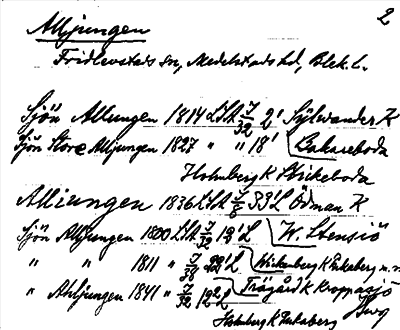 2
Alljungen
Fridlevstads sn, Medelstads hd, Blek. l.
Sjön Allungen 1814 LSA J/32 2' Sylvander K
Sjön Store Alljungen 1827 " " 18' Bakareboda
Holmberg K Bickeboda
Alliungen 1836 LSA J/8 33'L Ödman K
Sjön Alljungen 1800 LSA J/32 19'L W. Stensiö
" " 1811 " J/38 22'L Wickenberg K
" Ahljungen 1841 " J/32 Trägård K Kroppasjö
Holmberg K